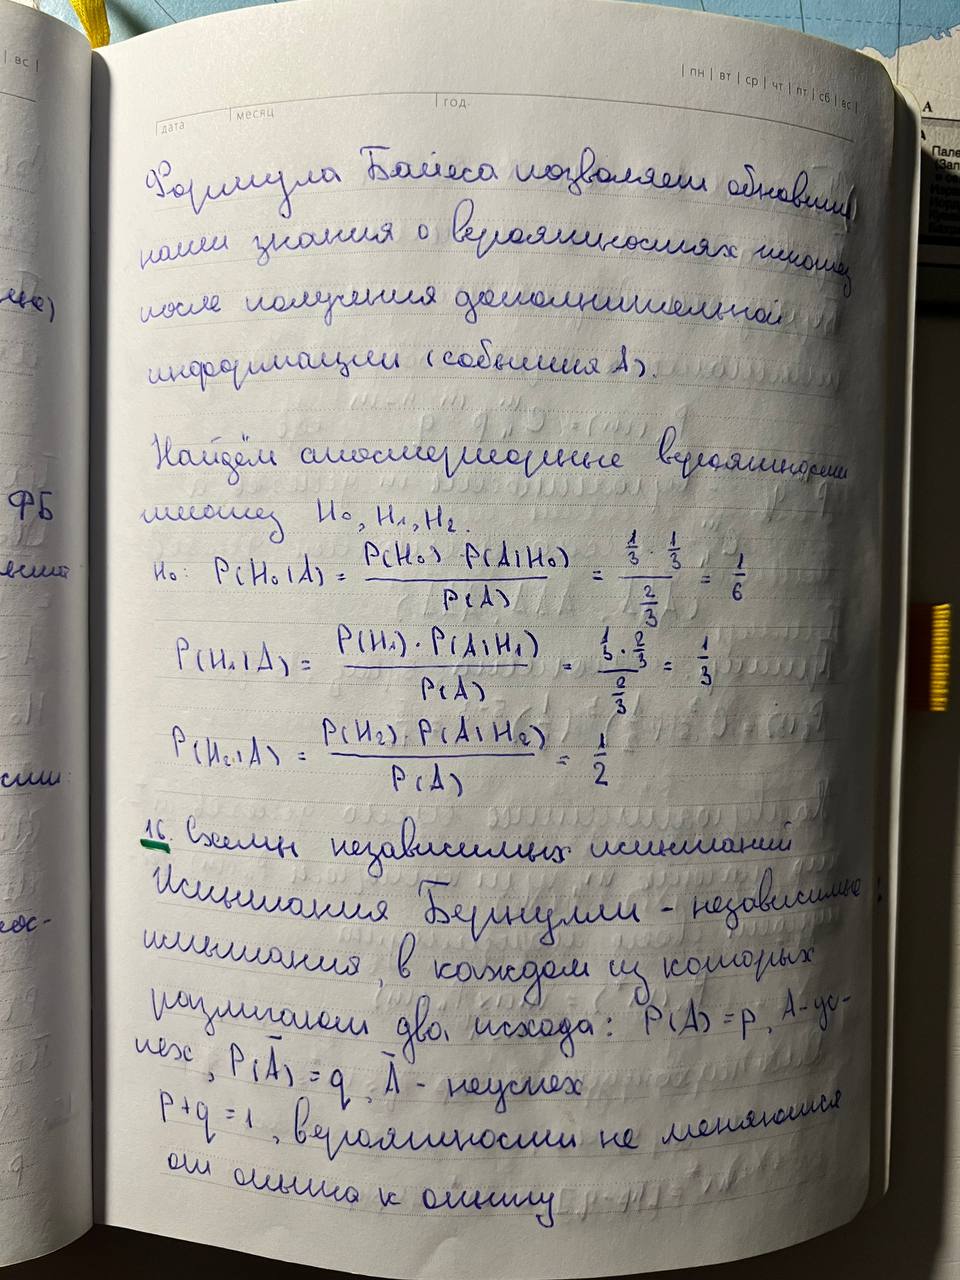 вс
пн вт ср чт пт сб вс
дата месяц год
Формула Байеса позволяет обновить
наши знания о вероятностях гипотез
после получения дополнительной
информации (события A).
Найдём апостериорные вероятности
гипотез H₀, H₁, H₂.
H₀: P(H₀|A) = P(H₀) P(A|H₀) / P(A) = 1/3 · 1/3 / 2/3 = 1/6
P(H₁|A) = P(H₁) · P(A|H₁) / P(A) = 1/3 · 2/3 / 2/3 = 1/3
P(H₂|A) = P(H₂) · P(A|H₂) / P(A) = 1/2
16. Схемы независимых испытаний
Испытания Бернулли - независимые
испытания, в каждом из которых
различают два исхода: P(A) = p, A - ус-
пех, P(Ā) = q, Ā - неуспех
p + q = 1, вероятности не меняются
от опыта к опыту
ФБ
A
Пале
(Запа